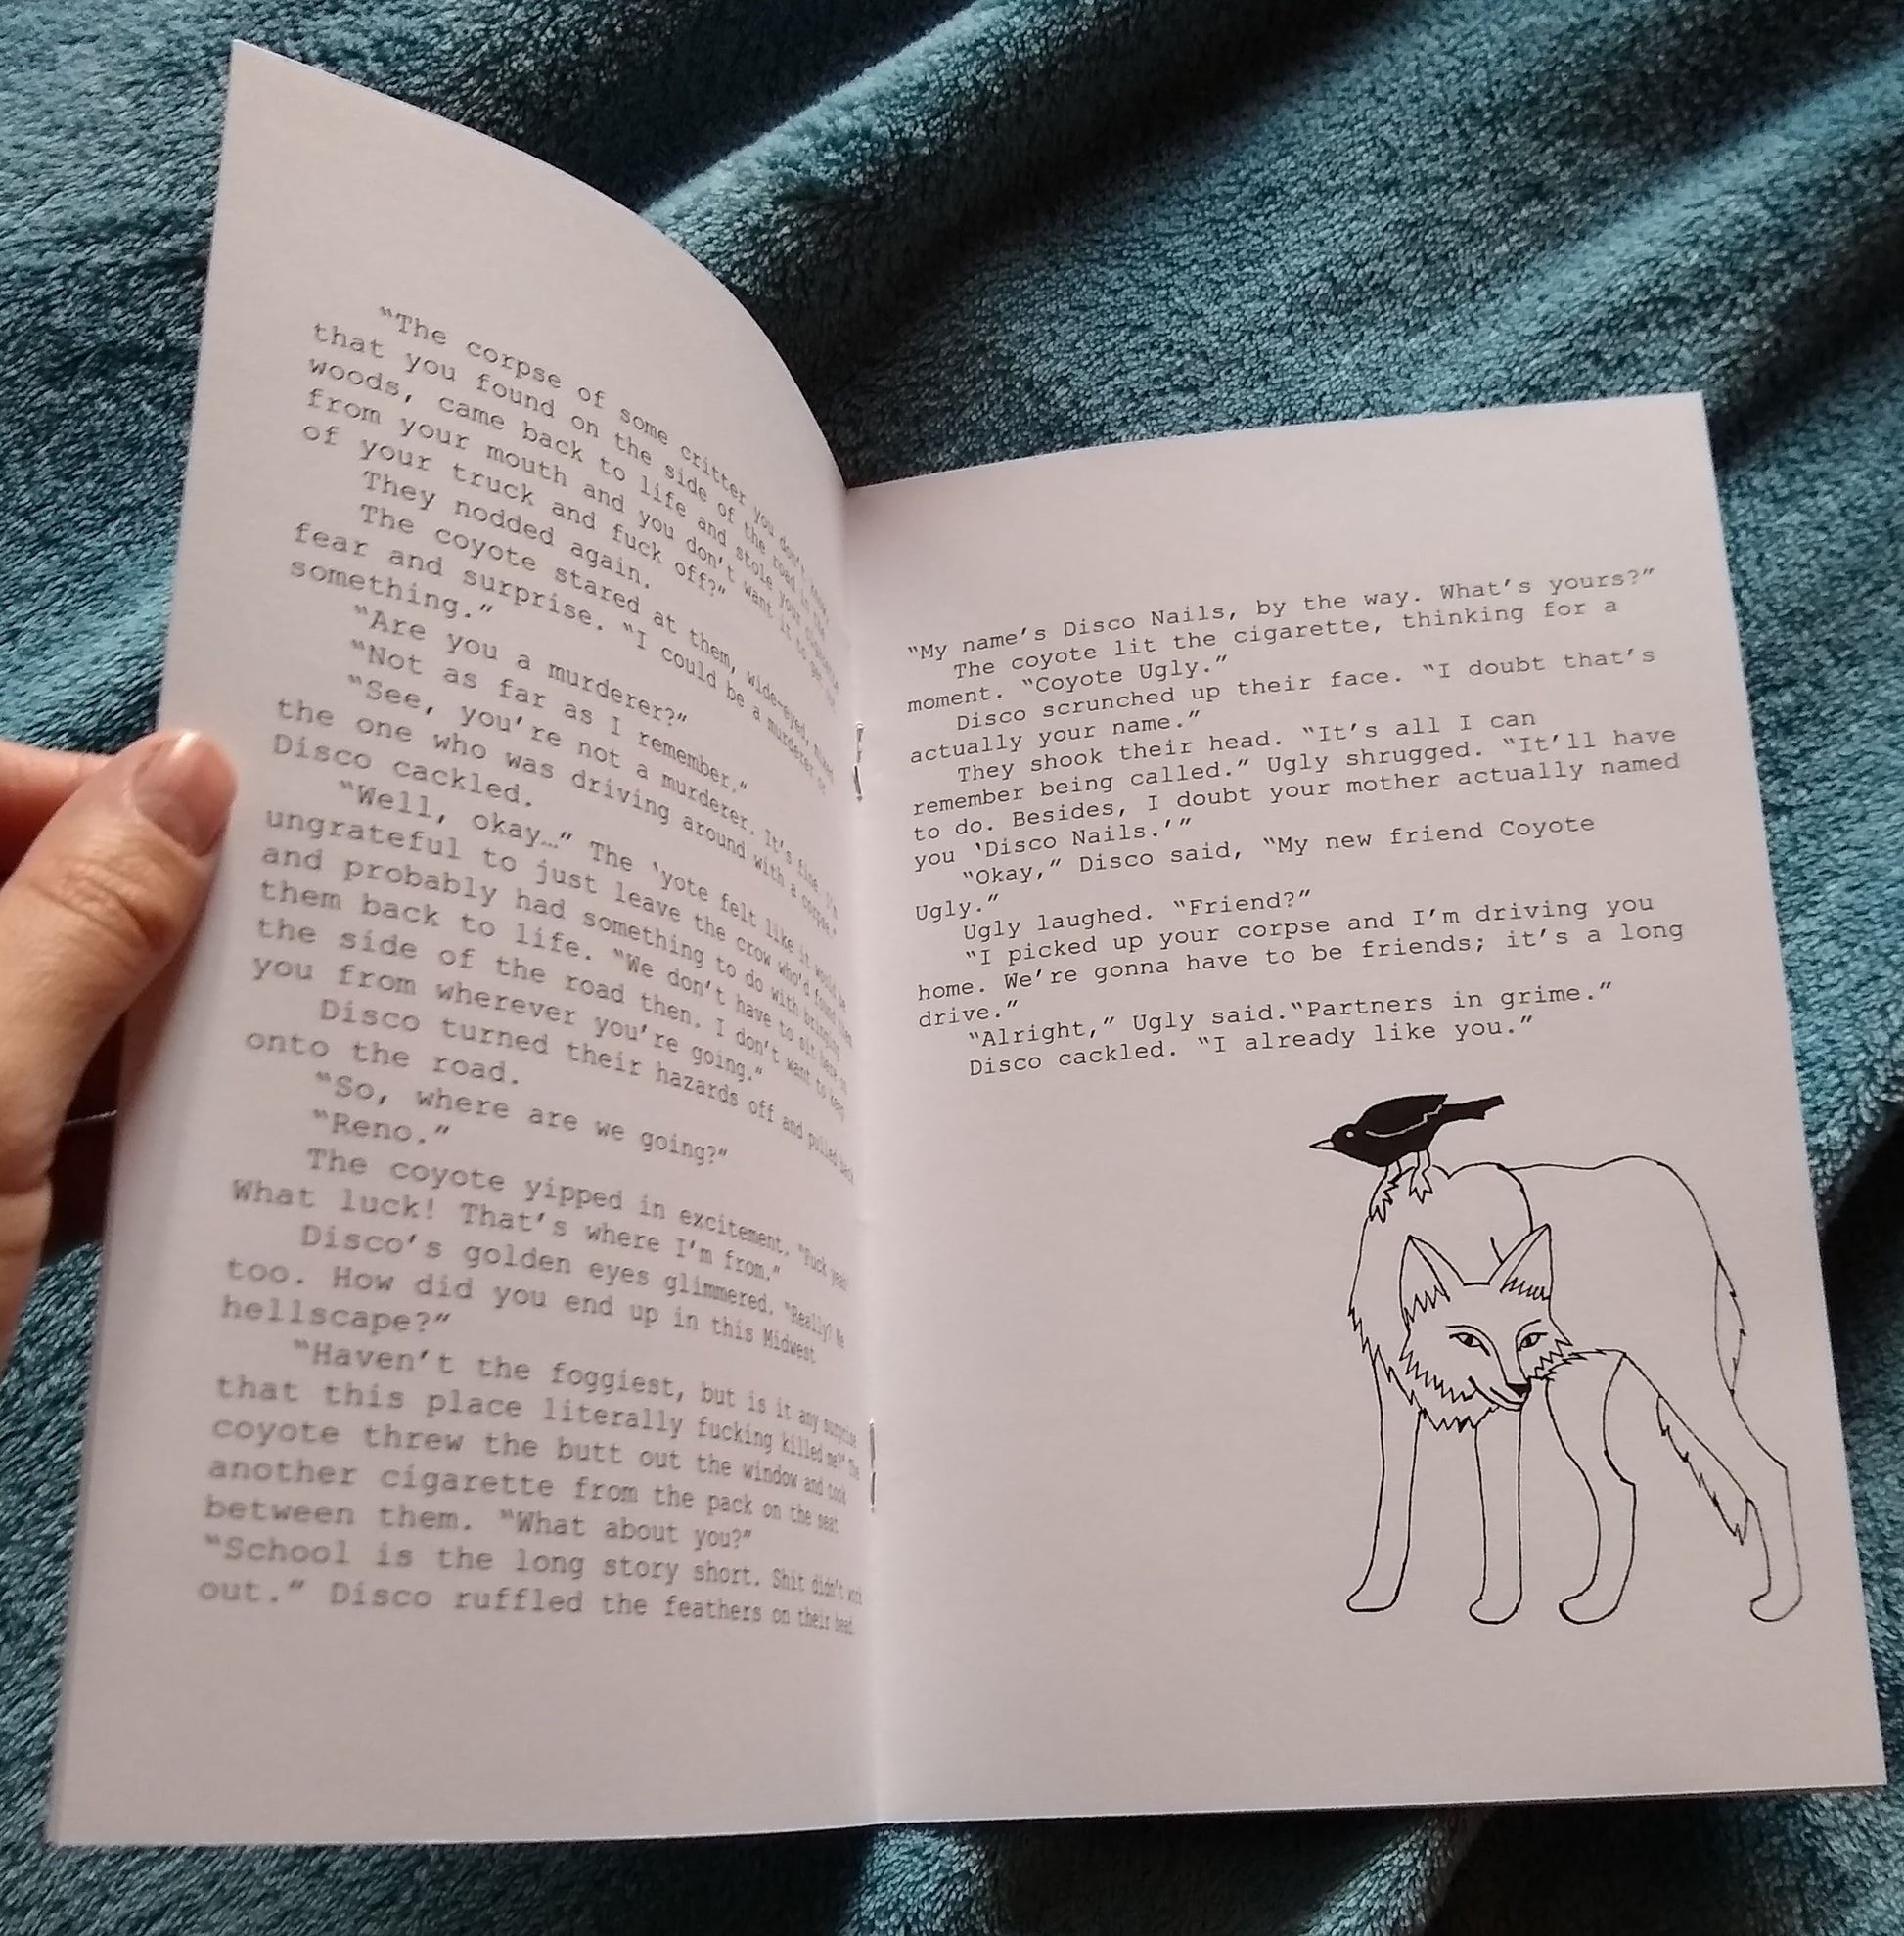 “The corpse of some critter you don't know
that you found on the side of the road in the
woods, came back to life and stole your cigarette
from your mouth and you don't want it to get out
of your truck and fuck off?”
They nodded again.
The coyote stared at them, wide-eyed, mixed
fear and surprise. “I could be a murderer or
something.”
“Are you a murderer?”
“Not as far as I remember.”
“See, you're not a murderer. It's fine. I'm
the one who was driving around with a corpse.”
Disco cackled.
“Well, okay…” The ‘yote felt like it would be
ungrateful to just leave the crow who'd found them
and probably had something to do with bringing
them back to life. “We don't have to sit here on
the side of the road then. I don't want to keep
you from wherever you're going.”
Disco turned their hazards off and pulled back
onto the road.
“So, where are we going?”
“Reno.”
The coyote yipped in excitement. “Fuck yeah!
What luck! That's where I'm from.”
Disco's golden eyes glimmered. “Really? Me
too. How did you end up in this Midwest
hellscape?”
“Haven't the foggiest, but is it any surprise
that this place literally fucking killed me?” The
coyote threw the butt out the window and took
another cigarette from the pack on the seat
between them. “What about you?”
“School is the long story short. Shit didn't work
out.” Disco ruffled the feathers on their head.
“My name's Disco Nails, by the way. What's yours?”
The coyote lit the cigarette, thinking for a
moment. “Coyote Ugly.”
Disco scrunched up their face. “I doubt that's
actually your name.”
They shook their head. “It's all I can
remember being called.” Ugly shrugged. “It'll have
to do. Besides, I doubt your mother actually named
you ‘Disco Nails.’”
“Okay,” Disco said, “My new friend Coyote
Ugly.”
Ugly laughed. “Friend?”
“I picked up your corpse and I'm driving you
home. We're gonna have to be friends; it's a long
drive.”
“Alright,” Ugly said.“Partners in grime.”
Disco cackled. “I already like you.”